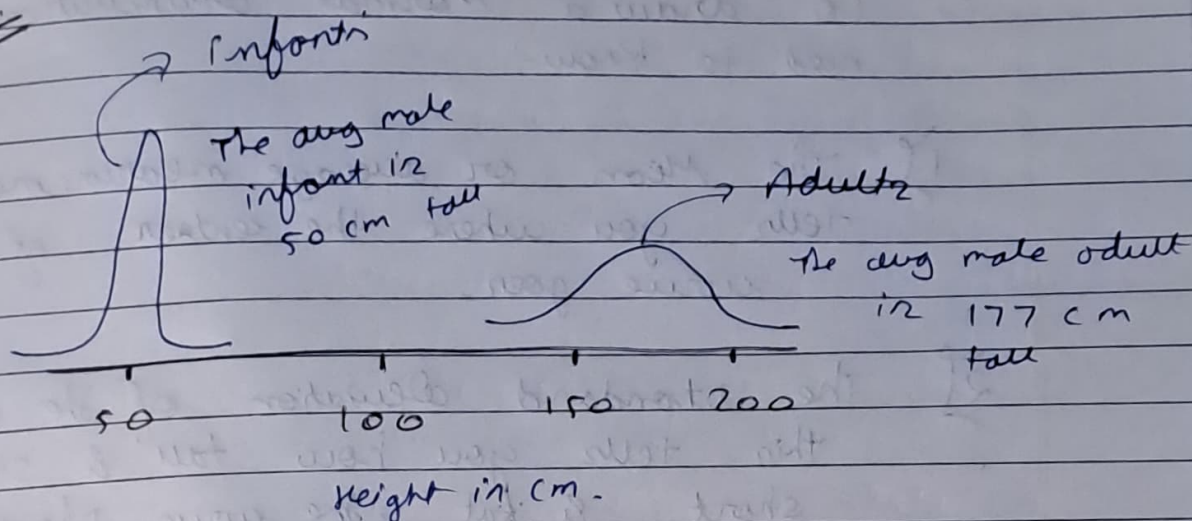 Infants
The avg male
infant is
50 cm tall
Adults
The avg male adult
is 177 cm
tall
50 100 150 200
Height in cm.